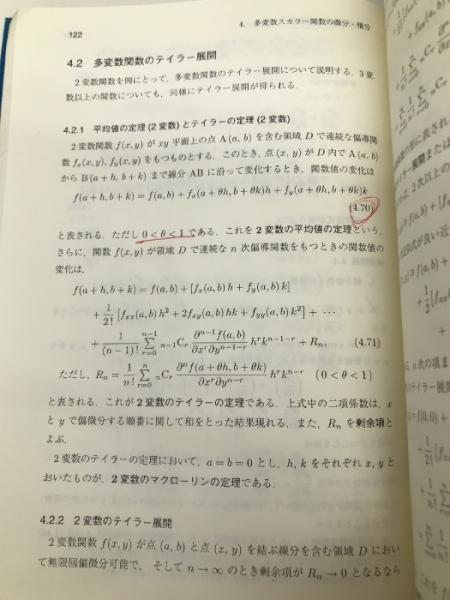 122
4. 多変数スカラー関数の微分・積分
4.2 多変数関数のテイラー展開
2変数関数を例にとって，多変数関数のテイラー展開について説明する．3変
数以上の関数についても，同様にテイラー展開が得られる．
4.2.1 平均値の定理(2変数)とテイラーの定理(2変数)
2変数関数 f(x,y) が xy 平面上の点 A(a,b) を含む領域 D で連続な偏導関
数 fx(x,y), fy(x,y) をもつものとする．このとき，点 (x,y) が D 内で A(a,b)
から B(a+h,b+k) まで線分 AB に沿って変化するとき，関数値の変化は
f(a+h,b+k) = f(a,b) + fx(a+θh,b+θk)h + fy(a+θh,b+θk)k
(4.70)
と表される．ただし 0<θ<1 である．これを2変数の平均値の定理という．
さらに，関数 f(x,y) が領域 D で連続な n 次偏導関数をもつときの関数値の
変化は，
f(a+h,b+k) = f(a,b) + [fx(a,b)h + fy(a,b)k]
+ 1/2! [fxx(a,b)h² + 2fxy(a,b)hk + fyy(a,b)k²] + ⋯
+ 1/(n−1)! Σ_{r=0}^{n−1} n−1Cr ∂ⁿ⁻¹f(a,b)/∂xʳ∂yⁿ⁻¹⁻ʳ hʳkⁿ⁻¹⁻ʳ + Rn, (4.71)
ただし，Rn = 1/n! Σ_{r=0}^{n} nCr ∂ⁿf(a+θh,b+θk)/∂xʳ∂yⁿ⁻ʳ hʳkⁿ⁻ʳ (0<θ<1)
と表される．これが2変数のテイラーの定理である．上式中の二項係数は，x
と y で偏微分する順番に関して和をとった結果現れる．また，Rn を剰余項と
よぶ．
2変数のテイラーの定理において，a=b=0 とし，h, k をそれぞれ x, y と
おいたものが，2変数のマクローリンの定理である．
4.2.2 2変数のテイラー展開
2変数関数 f(x,y) が点 (a,b) と点 (x,y) を結ぶ線分を含む領域 D におい
て無限回偏微分可能で，そして n→∞ のとき剰余項が Rn→0 となるなら